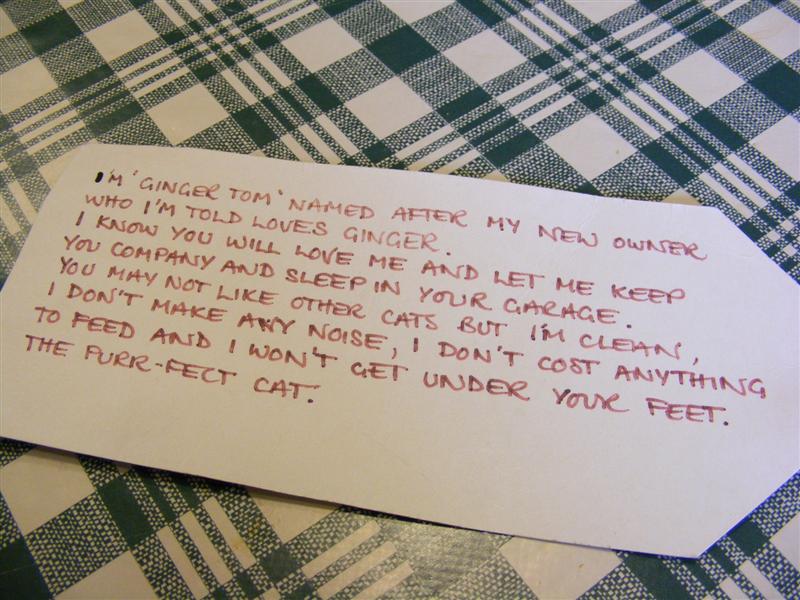 I'M 'GINGER TOM' NAMED AFTER MY NEW OWNER
WHO I'M TOLD LOVES GINGER.
I KNOW YOU WILL LOVE ME AND LET ME KEEP
YOU COMPANY AND SLEEP IN YOUR GARAGE.
YOU MAY NOT LIKE OTHER CATS BUT I'M CLEAN,
I DON'T MAKE ANY NOISE, I DON'T COST ANYTHING
TO FEED AND I WON'T GET UNDER YOUR FEET.
THE PURR-FECT CAT.